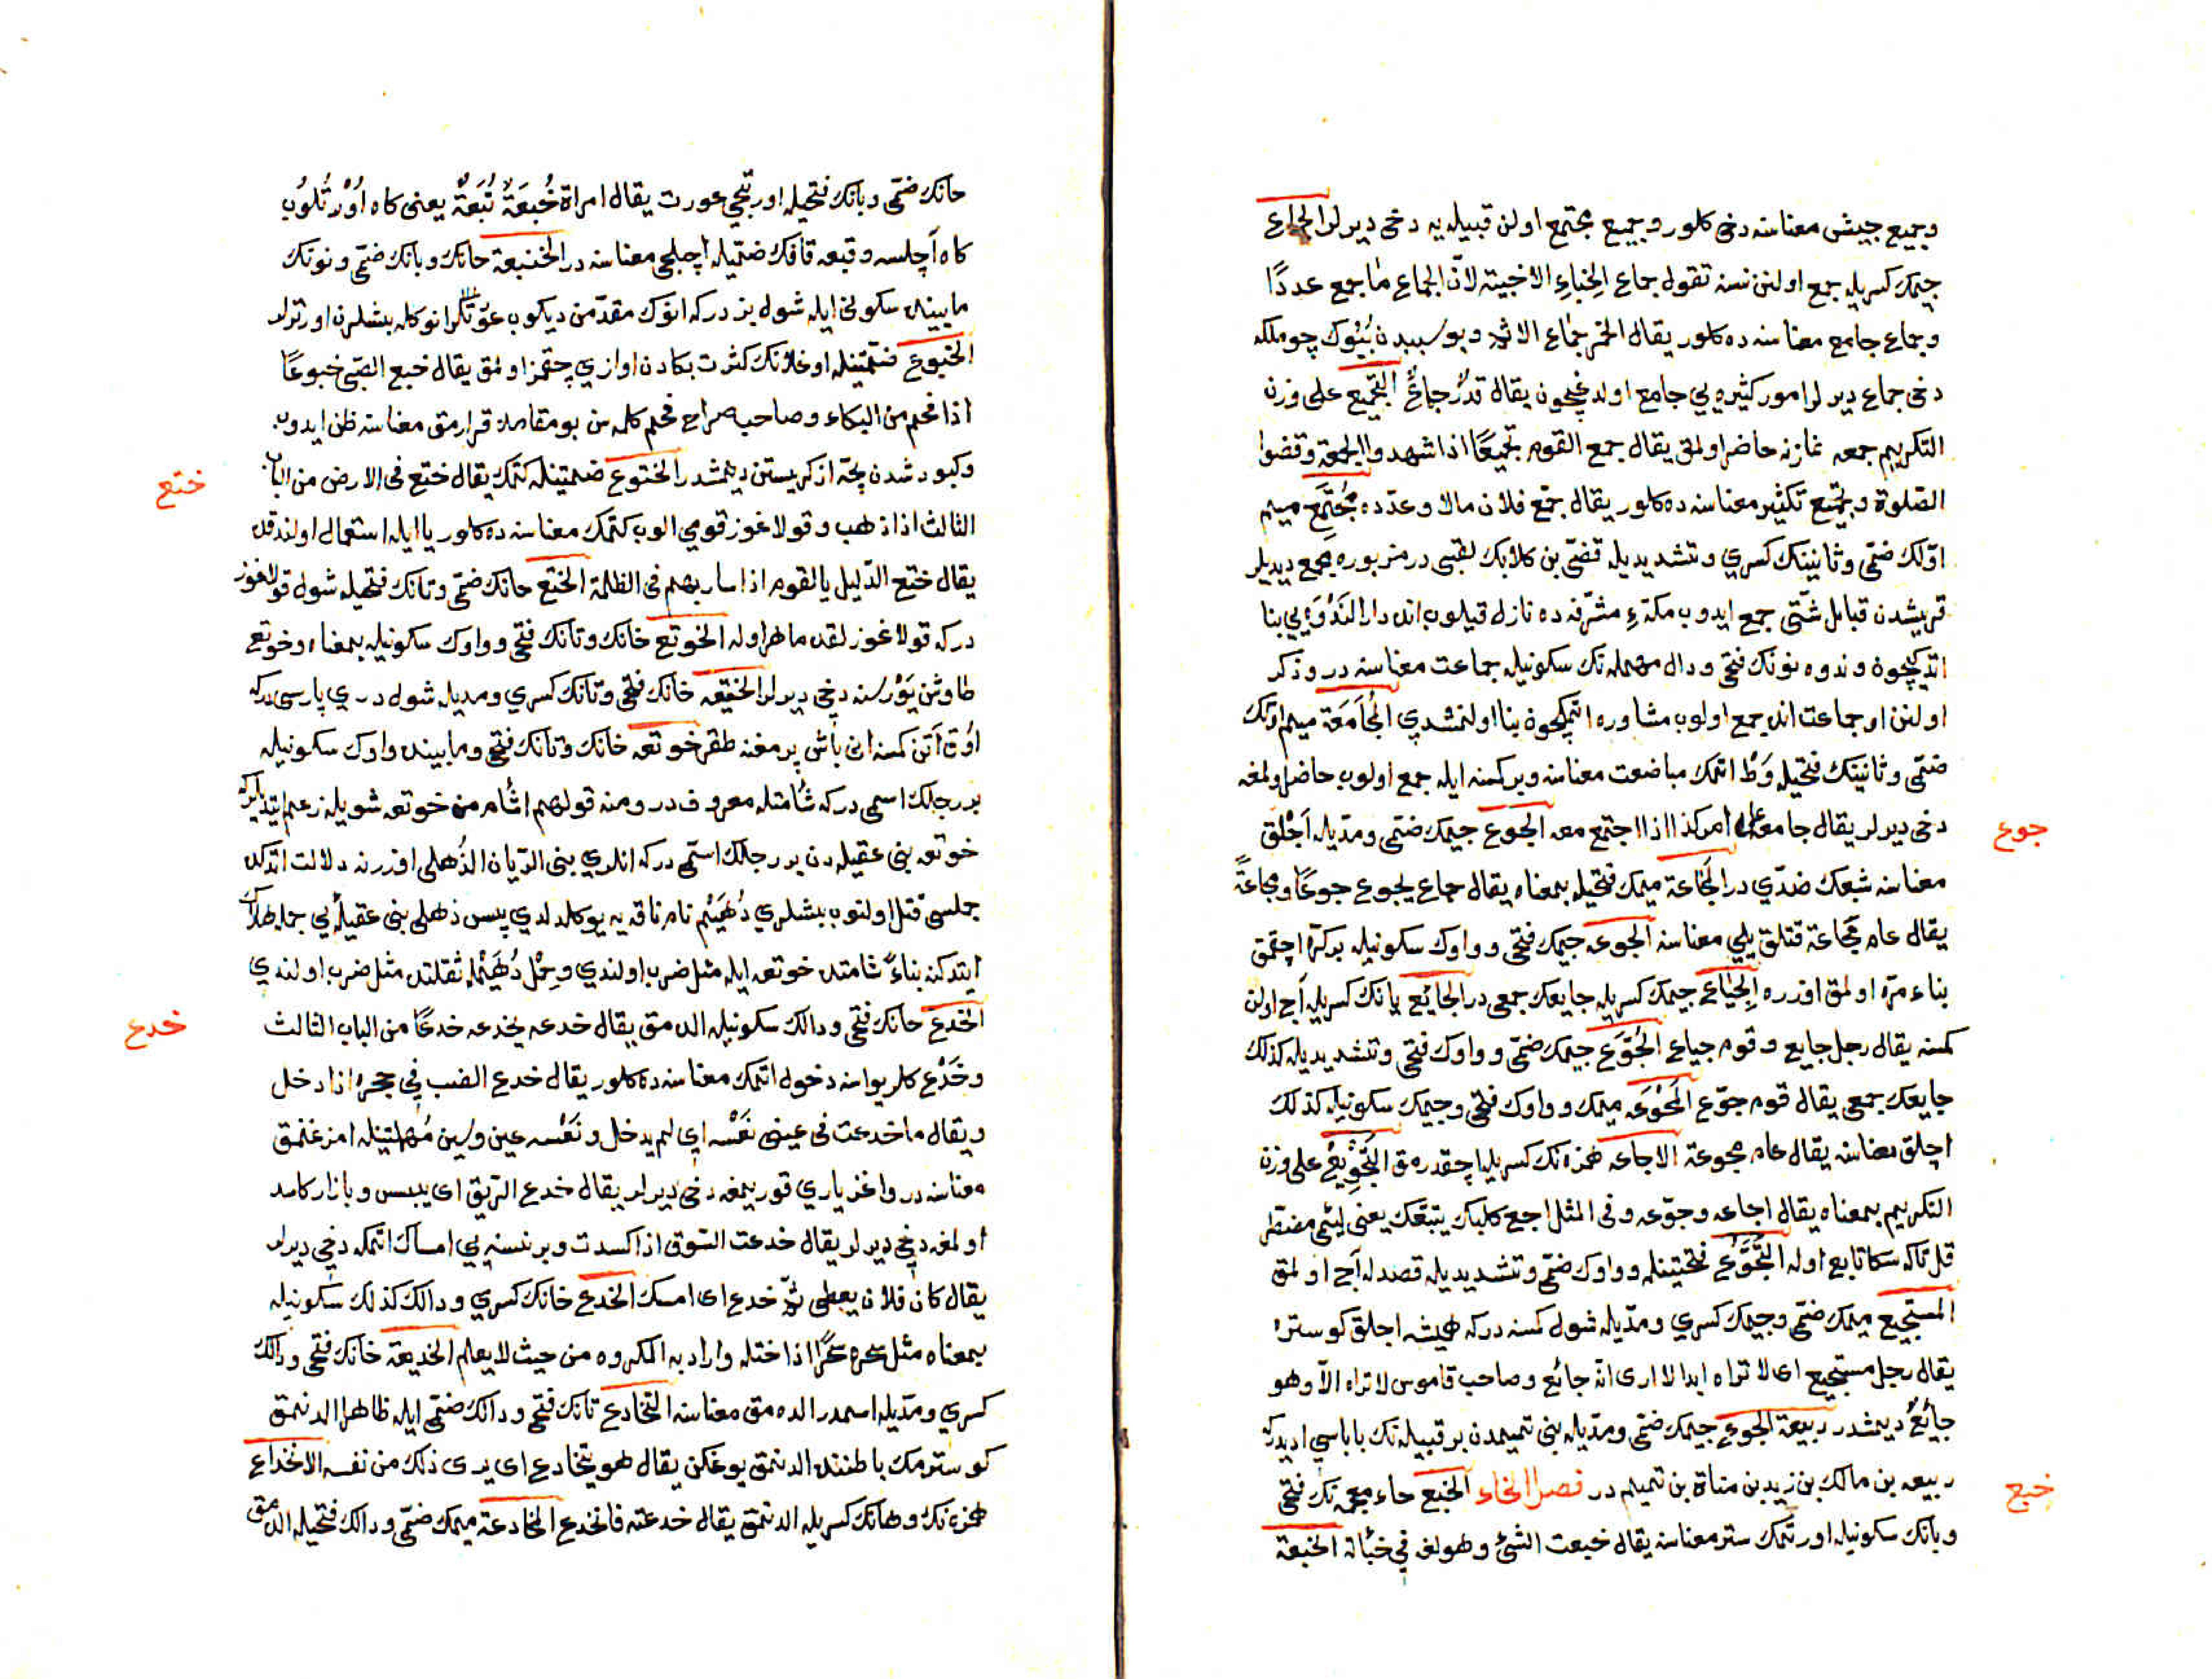 وجميع جيش معناسنه دخی کلور وجميع مجتمع اولن قبيله يه دخی ديرلر الجماع
جيمك كسريله جمع اولنن نسنه تقول جماع الخباءِ الاخبية لانّ الجماع ما جمع عددًا
وجماع جامع معناسنه ده کلور يقال الخمر جماع الاثم وبو سببدن بُيُوك چوملکه
دخی جماع ديرلر امور کثيره يی جامع اولدغيچون يقال قدرٌ جماعٌ التجميع علی وزن
التكريم جمعه نمازنه حاضر اولمق يقال جمع القوم تجميعًا اذا شهدوا الجمعة وقضوا
الصلوة وتجميع تكثير معناسنه ده کلور يقال جمّع فلان مالا وعدّده مُجَمِّع ميم
اوّلك ضمّی وثانينك كسری وتشديديله قصیّ بن كلابك لقبی در مزبوره مجمع ديديلر
قريشدن قبايل شتّی جمع ايدوب مكّهٔ مشرّفه ده نازل قيلوب انده دار النَدْوَه يی بنا
اتدکيچون وندوه نونك فتحی ودال مهمله نك سكونيله جماعت معناسنه در وذکر
اولنن اوجماعت انده جمع اولوب مشاوره اتمکچون بنا اولنمشدی الْمُجَامَعَة ميم اوّلك
ضمّی وثانينك فتحيله وَطْ اتمك مباضعت معناسنه وبر کمسنه ايله جمع اولوب حاضر اولمغه
دخی ديرلر يقال جامعه علی امر کذا اذا اجتمع معه الجوع جيمك ضمّی ومدّيله آجْلِق
معناسنه شبعك ضدّی در المجاعة ميمك فتحيله بمعناه يقال جاع يجوع جوعًا ومجاعةً
يقال عام مجاعة قتلق يلی معناسنه الجوعه جيمك فتحی وواوك سكونيله بركرّه اجقمق
بناء مرّه اولمق اوزره الجِيَاع جيمك كسريله جايعك جمعی در الجايع يانك كسريله آج اولن
کمسنه يقال رجل جايع وقوم جياع الجُوَّع جيمك ضمّی وواوك فتحی وتشديديله کذلك
جايعك جمعی يقال قوم جوّع المَجْوَعَه ميمك وواوك فتحی وجيمك سكونيله کذلك
اچلق معناسنه يقال عام مجوعة الاجاعه همزه نك كسريله اچقدرمق التَجْوِيعُ علی وزن
التكريم بمعناه يقال اجاعه وجوّعه وفی المثل اجع كلبك يتبعك يعنی لئمی مضطر
قل تاکه سکا تابع اوله التَجَوُّعُ فتحتينله وواوك ضمّی وتشديديله قصدله آج اولمق
المستجيع ميمك ضمّی وجيمك كسری ومدّيله شول کسنه درکه هميشه اجلق کوستره
يقال رجل مستجيع ای لا تراه ابدا الا اری انّه جائع وصاحب قاموس لا تراه الّا وهو
جائعٌ ديمشدر ربيعة الجوع جيمك ضمّی ومدّيله بنی تميمدن بر قبيله نك باباسی ادی درکه
ربيعه بن مالك بن زيد بن مناة بن تميم در فصل الخاء الخبع خاء معجمه نك فتحی
وبانك سكونيله اورتمك ستر معناسنه يقال خبعت الشیٔ وهو لغه فی خبأته الخبعة
جوع
خبع
خانك ضمّی وبانك فتحيله اورتنجی عورت يقال امراة خُبَعَةٌ تُبَعَةٌ يعنی کاه اُوْرتُلوُب
کاه آچلسه وقبعه قافك ضمّيله اچلجی معناسنه در الخنبعة خانك وبانك ضمّی ونونك
مابينده سكونی ايله شول بزدرکه انوك مقدّمن ديکوب عوّرتلر انوکله بشلرن اورترلر
الخبوع ضمّتينله اوغلانك کثرت بکادن اوازی چقمز اولمق يقال خبع الصّبی خبوعًا
اذا فحم من البكاء وصاحب صراح فحم کلمه سن بو مقامده قرارمق معناسنه ظن ايدوب
وكبود شدن بچّه از كريستن ديمشدر الختوع ضمتينله کتمك يقال ختع فی الارض من الباب
الثالث اذا ذهب وقولاغوز قومی الوب کتمك معناسنه ده کلور يا ايله استعمال اولندقده
يقال ختع الدّليل يا لقوم اذا سار بهم فی الظلمة الختع خانك ضمّی وتانك فتحيله شول قولاغوز
درکه قولاغوزلقده ماهر اوله الخوتع خانك وتانك فتحی وواوك سكونيله بمعناه وخوتع
طاوشن يَوْرُسنه دخی ديرلر الختيعه خانك فتحی وتانك كسری ومديله شول دری پارسی درکه
اوُق اتن کمسنه انی باش پرمغنه طقر خوتعه خانك وتانك فتحی ومابينده واوك سكونيله
بر رجلك اسمی درکه شأمتله معروف در ومنه قولهم اشأم من خوتعه شويله زعم ايتديلرکه
خوتعه بنی عقيله دن بر رجلك اسمّی درکه انلری بنی الزبان الذُهلی اوزرنه دلالت اتدکده
جملسی قتل اولنوب بشلری دُهَيْم نام ناقه يه يوکلدلدی پس ذهلی بنی عقيله يی جمله هلاك
ايتدکنه بناءً شامتده خوتعه ايله مثل ضرب اولندی وحِمْل دُهَيْمله ثقلتده مثل ضرب اولندی
الخدع خانك فتحی ودالك سكونيله الدمق يقال خدعه يخدعه خدعًا من الباب الثالث
وخَدْع کلر يواسنه دخول اتمك معناسنه ده کلور يقال خدع الضب فی جحره اذا دخل
ويقال ما خدعت فی عينی نَعْسه ای لم يدخل ونَعْسه عين وسين مُهملتينله امزغنمق
معناسنه در واغز ياری قوريمغه دخی ديرلر يقال خدع الرّيق ای يبس وبازار کاسد
اولمغه دخی ديرلر يقال خدعت السّوق اذا کسدت وبر نسنه يی امساك اتمکه دخی ديرلر
يقال کان فلان يعطی ثمّ خدع ای امسك الخدع خانك كسری ودالك کذلك سكونيله
بمعناه مثل سحره سحرًا اذا ختله واراد به المكروه من حيث لا يعلم الخديعة خانك فتحی ودالك
كسری ومدّيله اسمدر الدمق معناسنه التخادع تانك فتحی ودالك ضمّی ايله ظاهرا الدنمق
کوسترمك باطننده الدنمق يوغکن يقال هو يتخادع ای يری ذلك من نفسه الانخداع
همزه نك وهانك كسريله الدنمق يقال خدعته فانخدع المخادعة ميمك ضمّی ودالك فتحيله الدمق
ختع
خدع